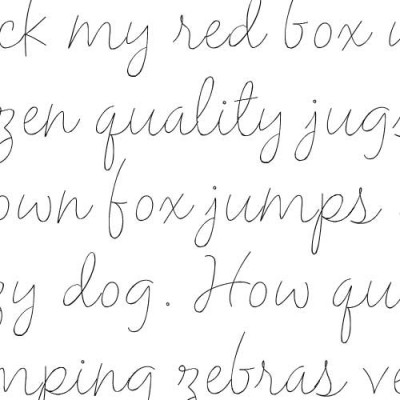 ck my red box
zen quality jugs
own fox jumps
zy dog. How qu
mping zebras ve